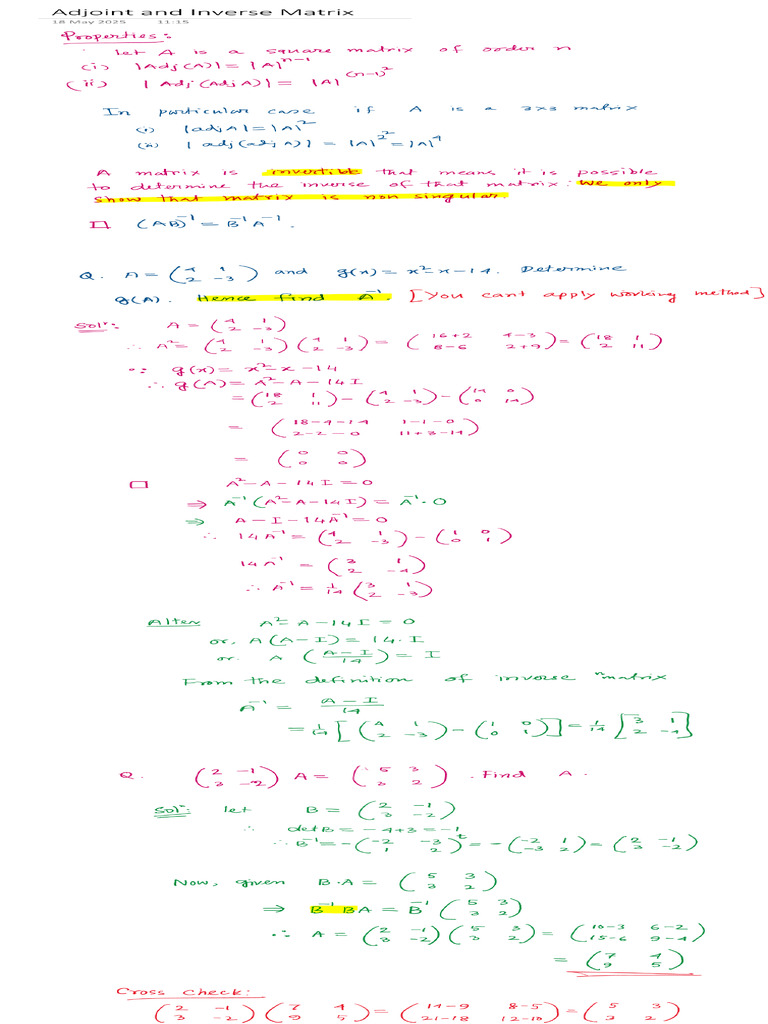 Adjoint and Inverse Matrix
18 May 2025 11:15
Properties:
Let A is a square matrix of order n
(i) |Adj(A)| = |A|^(n-1)
(ii) |Adj(AdjA)| = |A|^((n-1)^2)
In particular case if A is a 3x3 matrix
(i) |adjA| = |A|^2
(ii) |adj(adjA)| = |A|^(2^2) = |A|^4
A matrix is invertible that means it is possible
to determine the inverse of that matrix: We only
show that matrix is non singular.
□ (AB)^-1 = B^-1 A^-1.
Q. A = (4 1; 2 -3) and g(x) = x^2-x-14. Determine
g(A). Hence find A^-1. [You cant apply working method]
Sol^n: A = (4 1; 2 -3)
∴ A^2 = (4 1; 2 -3)(4 1; 2 -3) = (16+2 4-3; 8-6 2+9) = (18 1; 2 11)
∵ g(x) = x^2-x-14
∴ g(A) = A^2-A-14I
= (18 1; 2 11) - (4 1; 2 -3) - (14 0; 0 14)
= (18-4-14 1-1-0; 2-2-0 11+3-14)
= (0 0; 0 0)
□ A^2-A-14I = 0
⇒ A^-1(A^2-A-14I) = A^-1·0
⇒ A-I-14A^-1 = 0
∴ 14A^-1 = (4 1; 2 -3) - (1 0; 0 1)
14A^-1 = (3 1; 2 -4)
∴ A^-1 = 1/14 (3 1; 2 -3)
Alter A^2-A-14I = 0
or, A(A-I) = 14·I
or. A ((A-I)/14) = I
From the definition of inverse "matrix
A^-1 = (A-I)/14
= 1/14 [(4 1; 2 -3) - (1 0; 0 1)] = 1/14 [3 1; 2 -4]
Q. (2 -1; 3 -2) A = (5 3; 3 2). Find A.
Sol^n: let B = (2 -1; 3 -2)
∴ detB = -4+3 = -1
∴ B^-1 = -(-2 -3; 1 2)^t = -(-2 1; -3 2) = (2 -1; 3 -2)
Now, given B·A = (5 3; 3 2)
⇒ B^-1 BA = B^-1 (5 3; 3 2)
∴ A = (2 -1; 3 -2)(5 3; 3 2) = (10-3 6-2; 15-6 9-4)
= (7 4; 9 5)
Cross check:
(2 -1; 3 -2)(7 4; 9 5) = (14-9 8-5; 21-18 12-10) = (5 3; 3 2)